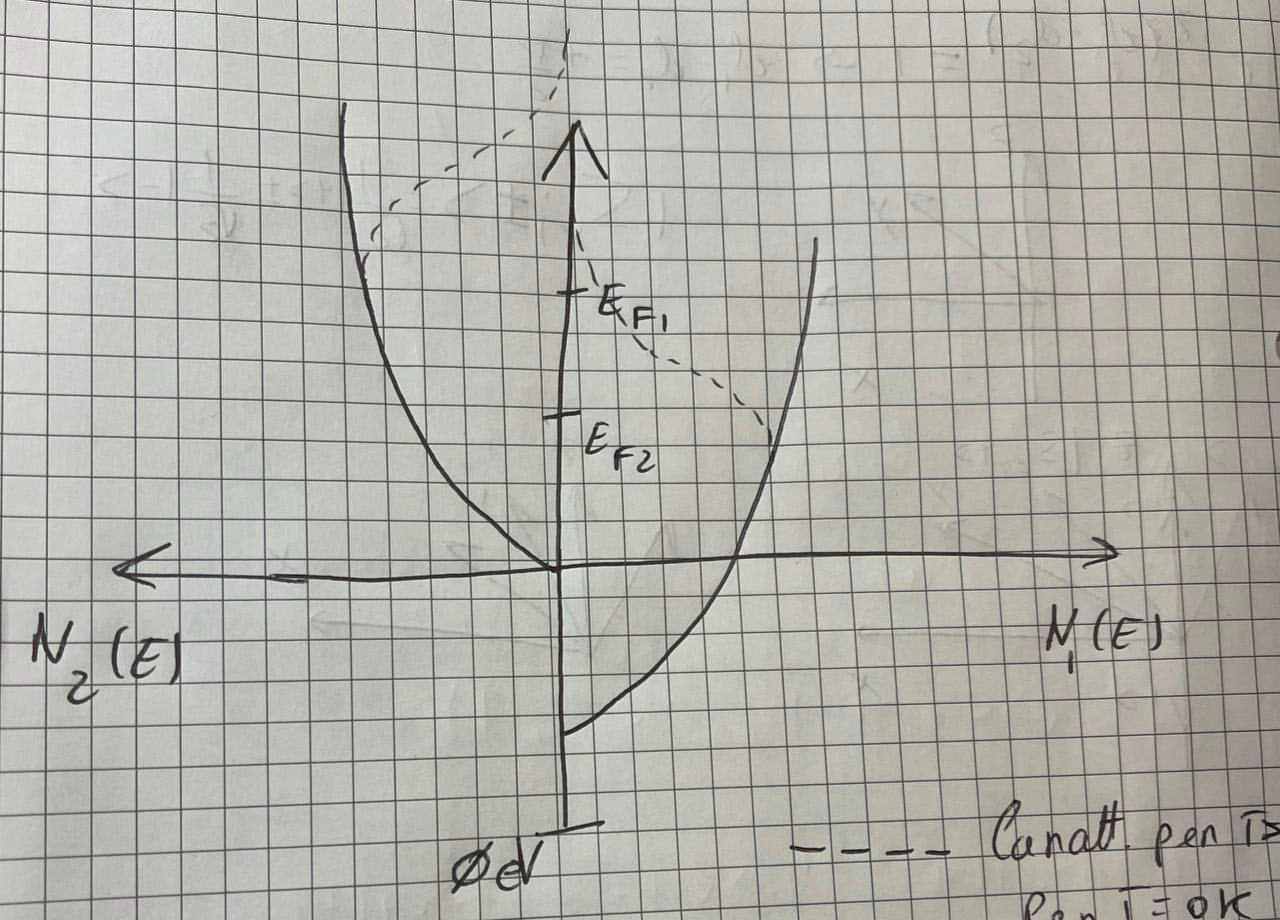 E_F1
E_F2
N_2(E)
N_1(E)
ØeV
---- Caratt. per T>
Per T=0K